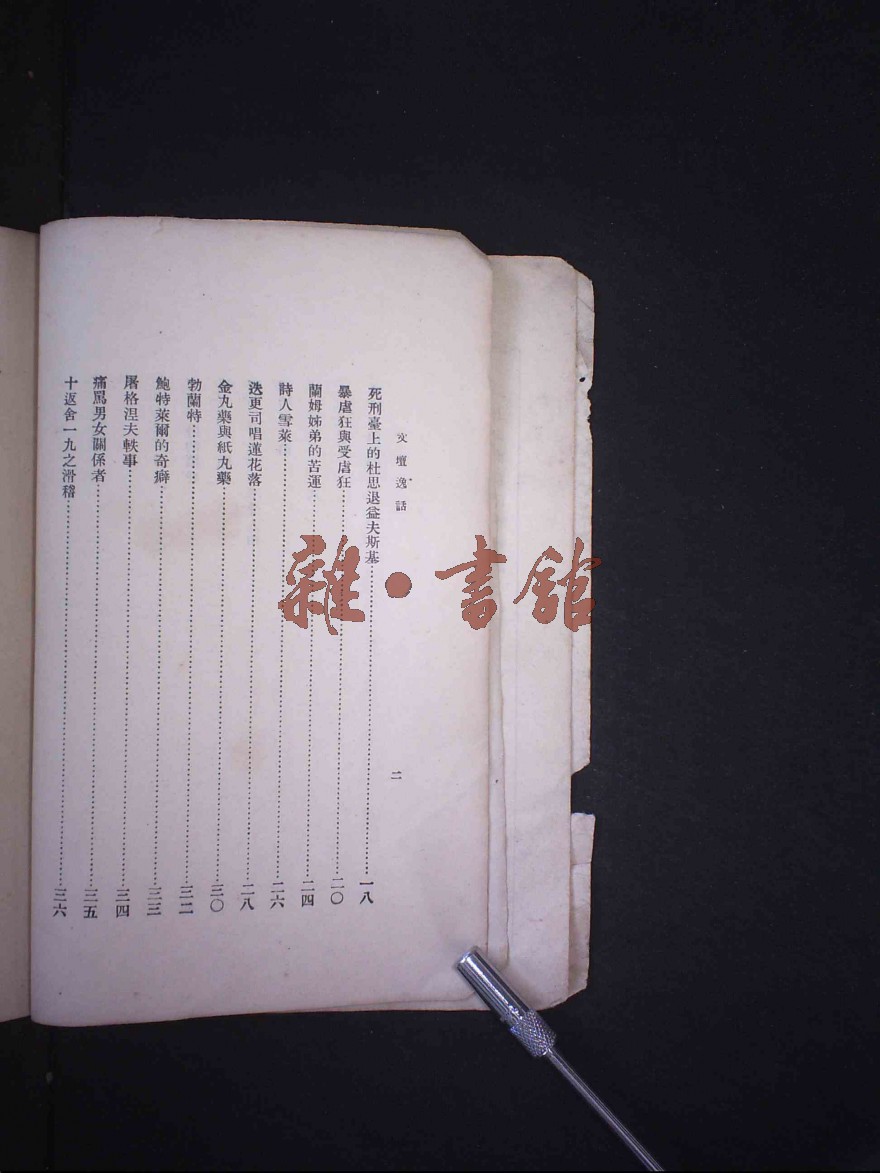 文壇逸話
二
死刑臺上的杜思退益夫斯基……一八
暴虐狂與受虐狂……二〇
蘭姆姊弟的苦運……二四
詩人雪萊……二六
迭更司唱蓮花落……二八
金丸藥與紙丸藥……三〇
勃蘭特……三二
鮑特萊爾的奇癖……三三
屠格涅夫軼事……三四
痛罵男女關係者……三五
十返舍一九之滑稽……三六
雜·書館